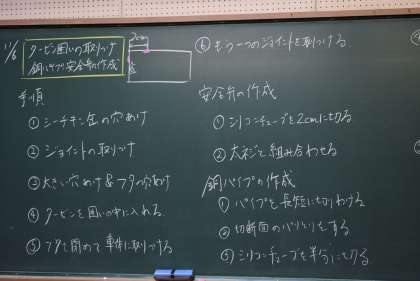 11/6
タービン囲いの取りつけ
銅パイプ、安全弁の作成
2cm
手順
① シーチキン缶の穴あけ
② ジョイントの取りつけ
③ 大きい穴あけ&フタの穴あけ
④ タービンを囲いの中に入れる
⑤ フタを閉めて車体に取りつける
⑥ もう一つのジョイントを取りつける
安全弁の作成
① シリコンチューブを2cmに切る
② 太ネジと組み合わせる
銅パイプの作成
① パイプを長短に切りわける
② 切断面のバリとりをする
③ シリコンチューブを半分に切る